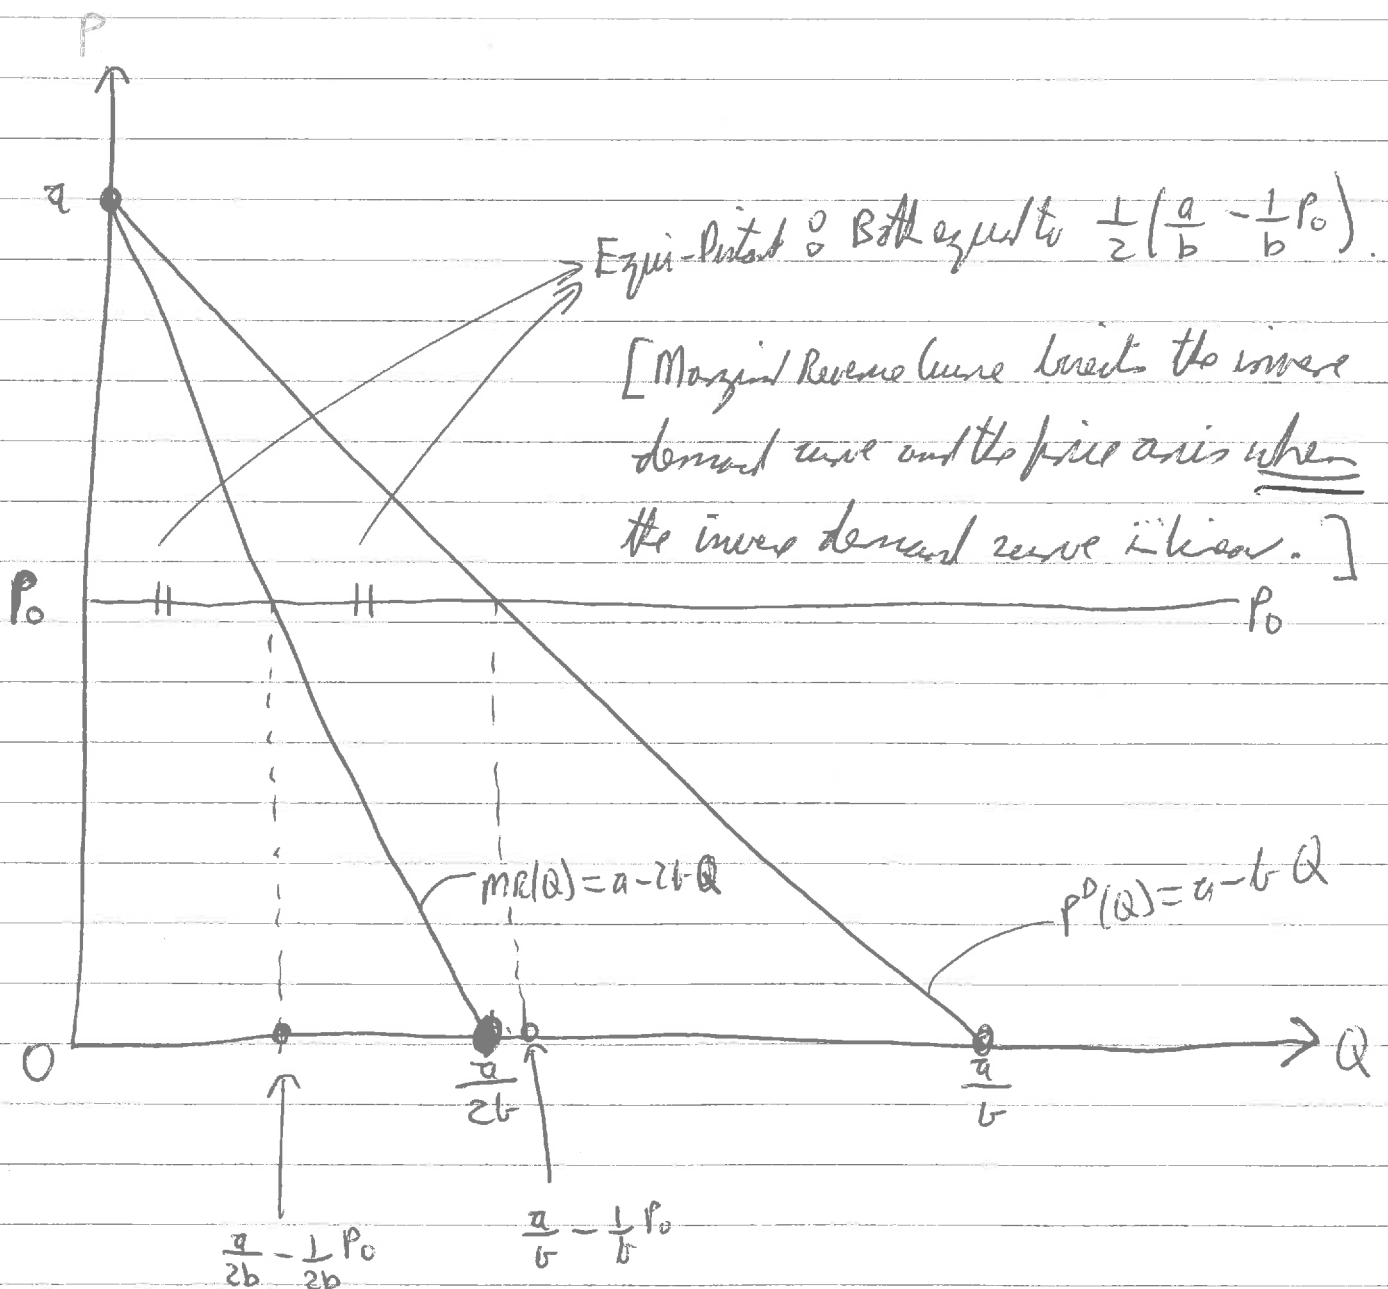 P
a
Equi-Distant : Both equal to 1/2 (a/b - 1/b P₀).
[Marginal Revenue Curve bisects the inverse
demand curve and the price axis when
the inverse demand curve is linear.]
P₀
P₀
MR(Q) = a - 2bQ
Pᴰ(Q) = a - bQ
O
a/2b
a/b
Q
a/2b - 1/2b P₀
a/b - 1/b P₀